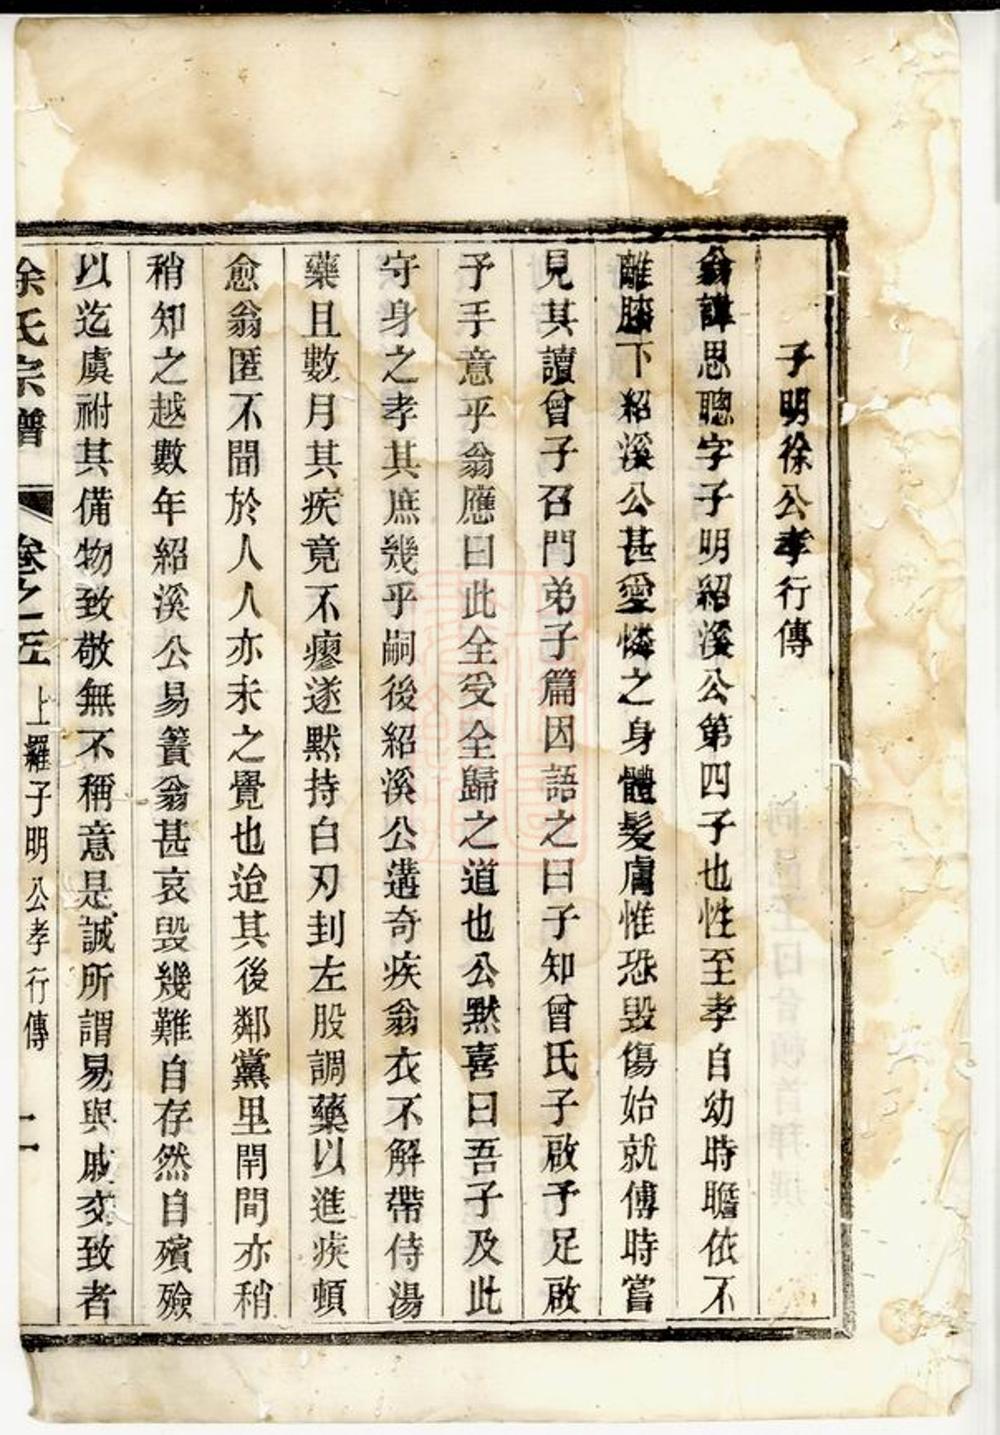 子明徐公孝行傳
翁諱思聰字子明紹溪公第四子也性至孝自幼時瞻依不
離膝下紹溪公甚愛憐之身體髮膚惟恐毀傷始就傅時嘗
見其讀曾子召門弟子篇因語之曰子知曾氏子啟予足啟
予手意乎翁應曰此全受全歸之道也公默喜曰吾子及此
守身之孝其庶幾乎嗣後紹溪公遘奇疾翁衣不解帶侍湯
藥且數月其疾竟不瘳遂默持白刃刲左股調藥以進疾頓
愈翁匿不聞於人人亦未之覺也迨其後鄰黨里閈間亦稍
稍知之越數年紹溪公易簀翁甚哀毀幾難自存然自殯殮
以迄虞祔其備物致敬無不稱意是誠所謂易與戚交致者
徐氏宗譜 卷之五 上羅子明公孝行傳 二